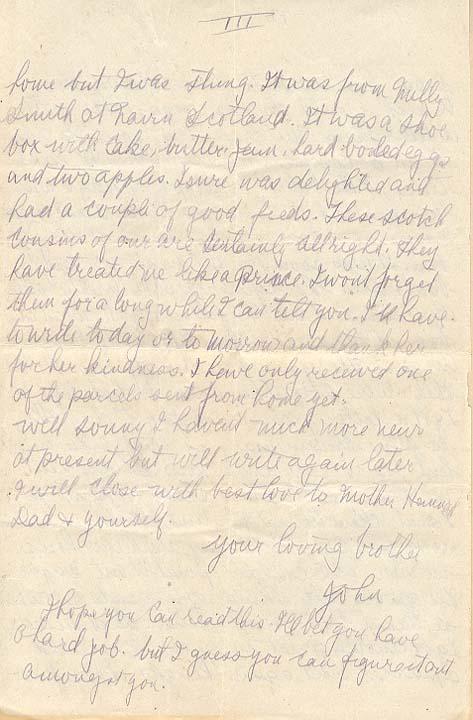 III
home but I was stung. It was from Milly
Smith at Nairn Scotland. It was a shoe
box with cake, butter, jam, hard-boiled eggs
and two apples. I sure was delighted and
had a couple of good feeds. These scotch
cousins of our are certainly allright. They
have treated me like a prince. I won't forget
them for a long while I can tell you. I'll have
to write today or to morrow and thank her
for her kindness. I have only received one
of the parcels sent from home yet.
Well sonny I havent much more news
at present but will write again later
I will close with best love to Mother
Dad & yourself.
your loving brother
John
I hope you can read this. I'll bet you have
a hard job. but I guess you can figure it out
amongst you.